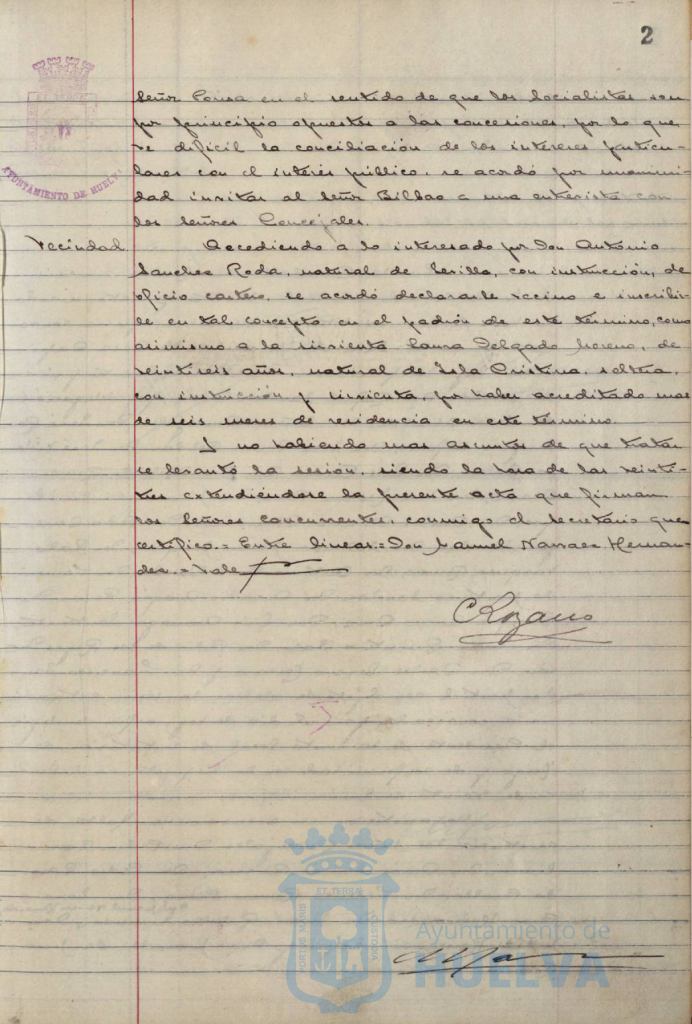 2
Señor Ponsa en el sentido de que los Socialistas son
por principio opuestos a las concesiones, por lo que
ve dificil la conciliación de los intereses particu-
lares con el interés público, se acordó por unanimi-
dad invitar al Señor Bilbao a una entrevista con
los Señores Concejales.
Vecindad.
Accediendo a lo interesado por Don Antonio
Sanchez Roda, natural de Sevilla, con instrucción, de
oficio cartero, se acordó declararle vecino e inscribir-
le en tal concepto en el padrón de este término, como
asimismo a la sirvienta Laura Delgado Moreno, de
veintiseis años, natural de Isla Cristina, soltera,
con instrucción y sirvienta, por haber acreditado mas
de seis meses de residencia en este término.
Y no habiendo mas asuntos de que tratar
se levantó la sesión, siendo la hora de las veinti-
tres extendiéndose la presente acta que firman
los Señores concurrentes, conmigo el Secretario que
certifico.= Entre lineas.= Don Manuel Narvaez Hernan-
dez.= Vale
AYUNTAMIENTO DE HUELVA
PORTUS MARIS ET TERRAE CUSTODIA
Ayuntamiento de
HUELVA